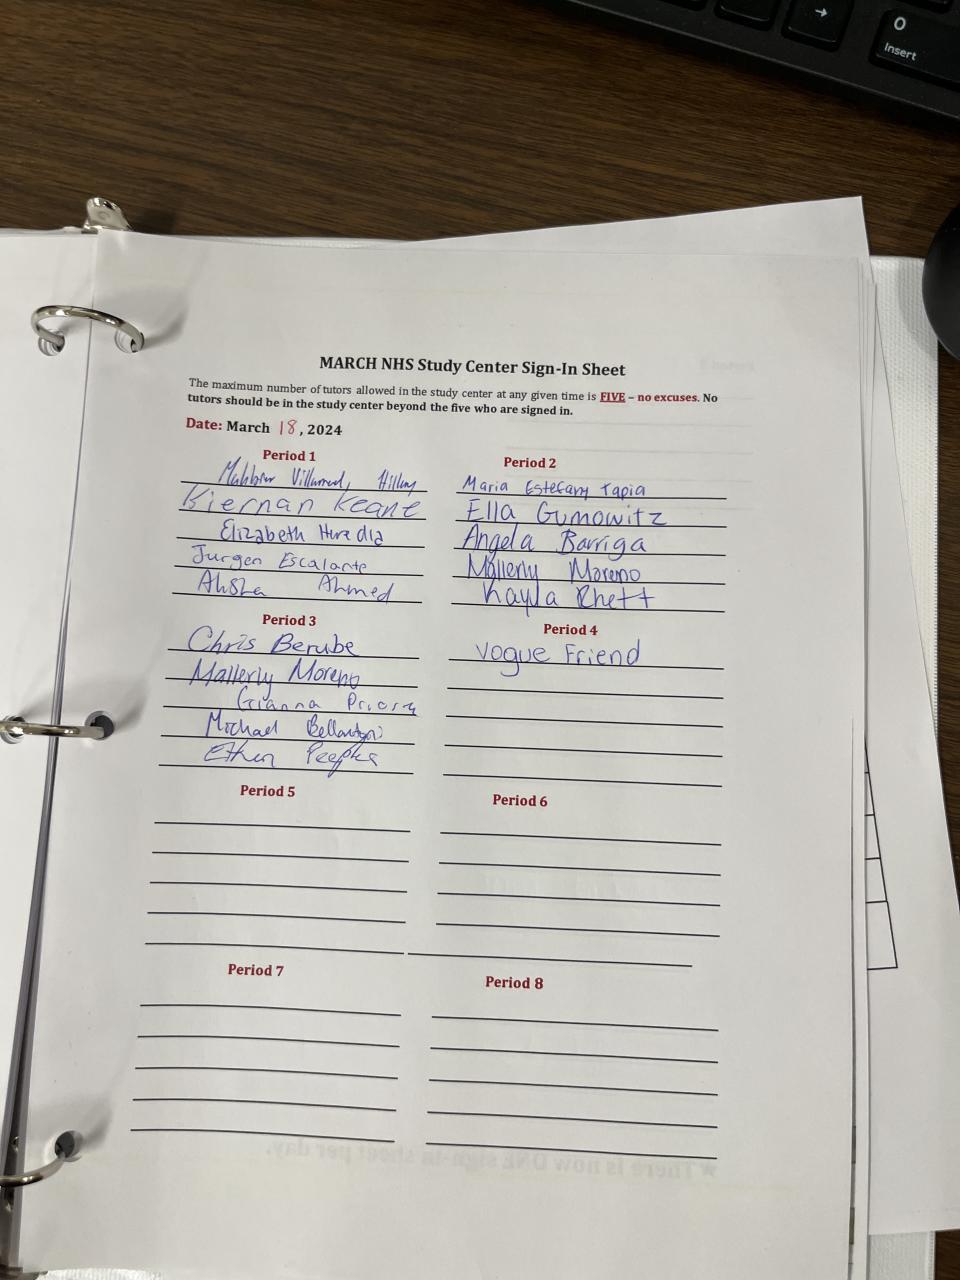 →
0
Insert
MARCH NHS Study Center Sign-In Sheet
The maximum number of tutors allowed in the study center at any given time is FIVE – no excuses. No
tutors should be in the study center beyond the five who are signed in.
Date: March 18, 2024
Period 1
Hillary
Kiernan Keane
Elizabeth Heredia
Jurgen Escalante
Ahmed
Period 2
Maria Estefany Tapia
Ella Gumowitz
Angela Barriga
Mallerly Moreno
Kayla Rhett
Period 3
Chris Berube
Mallerly Moreno
Gianna
Michael
Ethan
Period 4
Vogue Friend
Period 5
Period 6
Period 7
Period 8
★There is now ONE sign-in sheet per day.